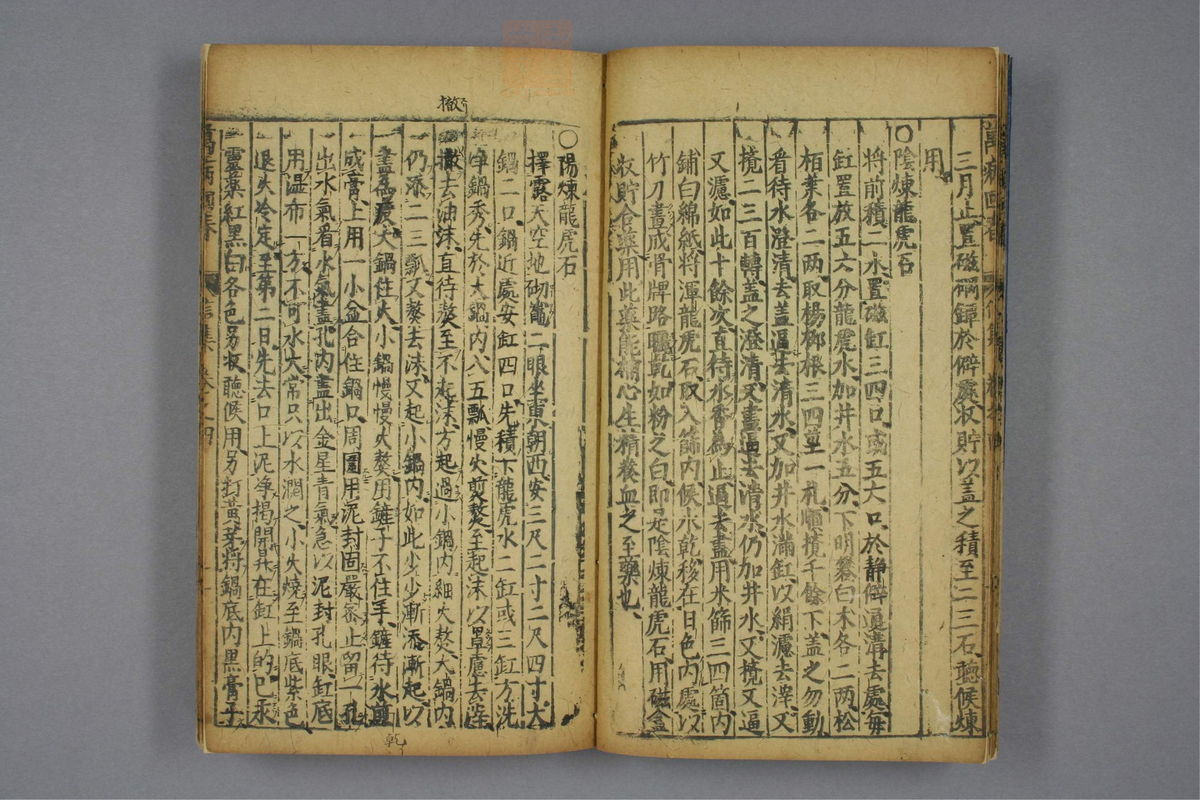 三月止置磁礶鐔於僻處収貯以蓋之積至二三石聽候煉
用
○陰煉龍虎石
將前積二水置磁缸三四口或五六口於静僻通溝去處每
缸置放五六分龍虎水加井水五分下明礬白术各二两松
栢葉各二两取楊栁根三四莖一札順攪千餘下蓋之勿動
看待水澄清去蓋逼去清水又加井水滿缸以絹濾去滓又
攪二三百轉蓋之澄清又盡逼去清水仍加井水又攪又逼
又濾如此十餘次直待水香為止逼去盡用米篩三四箇内
鋪白綿紙將渾龍虎石取入篩内候水乾移在日色内處以
竹刀畫成骨牌路曬乾如粉之白即是陰煉龍虎石用磁盒
収貯合藥用此藥能補心生精養血之至藥也
○陽煉龍虎石
擇露天空地砌竈二眼坐東朝西安三尺二寸二尺四寸大
鍋二口鍋近處安缸四口先積下龍虎水二缸或三缸方洗
宰鍋秀先於大鍋内八五瓢慢火煎熬至起沫以罩慮去滓
撤去油沫直待熬至不起沫方起過小鍋内細火熬大鍋内
仍添二三瓢又熬去沫又起小鍋内如此少少漸添漸起以
盡爲度大鍋住火小鍋慢慢火熬用鏟子不住手鏟待水煎
成膏上用一小盆合住鍋口周圍用泥封固嚴密止留一孔
出水氣看水氣盡孔内盡出金星青氣急以泥封孔眼缸底
用濕布一方不可水大常只以水潤之小火燒至鍋底紫色
退火冷定至第二日先去口上泥净揭開昇在缸上的已汞
靈藥紅黑白各色另収聽候用另打黄芽將鍋底内黑膏子
撤
乾